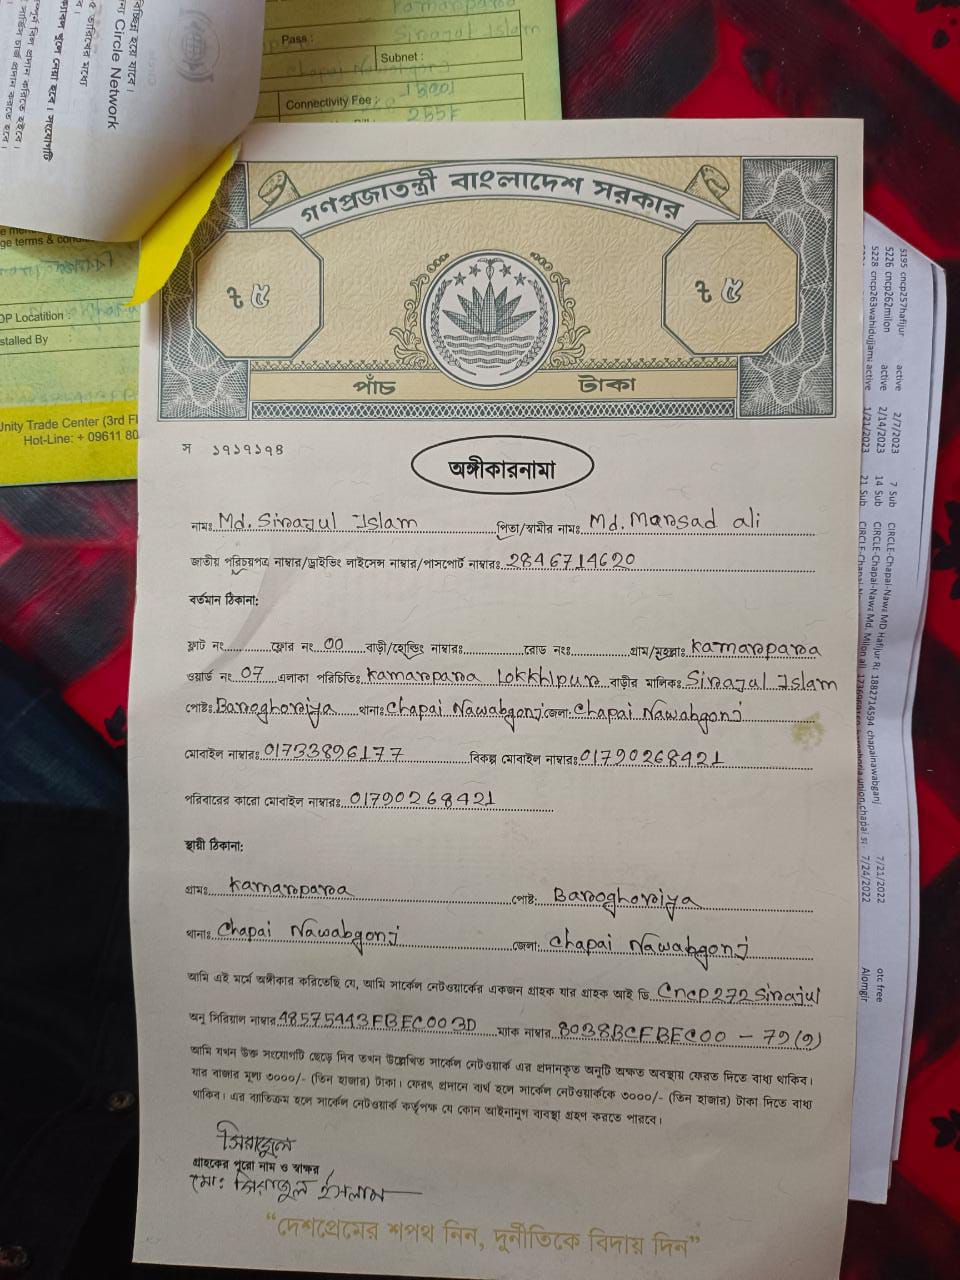 Kamarpara
Pass :
Sirajul Islam
Subnet :
Chapai Nawabgonj
Connectivity Fee :
1500/
255F
Circle Network
ge terms & cond
OP Locatition :
stalled By :
Unity Trade Center (3rd Fl
Hot-Line: + 09611 80
গণপ্রজাতন্ত্রী বাংলাদেশ সরকার
৳ ৫ ৳ ৫
পাঁচ টাকা
স ১৭১৭১৭৪
অঙ্গীকারনামা
নামঃ Md. Sirajul Islam পিতা/স্বামীর নামঃ Md. Marsad ali
জাতীয় পরিচয়পত্র নাম্বার/ড্রাইভিং লাইসেন্স নাম্বার/পাসপোর্ট নাম্বারঃ 2846714620
বর্তমান ঠিকানা:
ফ্লাট নং ফ্লোর নং 00 বাড়ী/হোল্ডিং নাম্বারঃ রোড নংঃ গ্রাম/মহল্লাঃ Kamarpara
ওয়ার্ড নং 07 এলাকা পরিচিতিঃ Kamarpara Lokkhipur বাড়ীর মালিকঃ Sirajul Islam
পোষ্টঃ Baroghoriya থানাঃ Chapai Nawabgonj জেলা: Chapai Nawabgonj
মোবাইল নাম্বারঃ 01733896177 বিকল্প মোবাইল নাম্বারঃ 01790268421
পরিবারের কারো মোবাইল নাম্বারঃ 01790268421
স্থায়ী ঠিকানা:
গ্রামঃ Kamarpara পোষ্ট: Baroghoriya
থানাঃ Chapai Nawabgonj জেলা: Chapai Nawabgonj
আমি এই মর্মে অঙ্গীকার করিতেছি যে, আমি সার্কেল নেটওয়ার্কের একজন গ্রাহক যার গ্রাহক আই ডি Cncp272Sirajul
অনু সিরিয়াল নাম্বার 48575443FBEC003D ম্যাক নাম্বার 8038BCFBEC00 - 79(9)
আমি যখন উক্ত সংযোগটি ছেড়ে দিব তখন উল্লেখিত সার্কেল নেটওয়ার্ক এর প্রদানকৃত অনুটি অক্ষত অবস্থায় ফেরত দিতে বাধ্য থাকিব।
যার বাজার মূল্য ৩০০০/- (তিন হাজার) টাকা। ফেরৎ প্রদানে ব্যর্থ হলে সার্কেল নেটওয়ার্ককে ৩০০০/- (তিন হাজার) টাকা দিতে বাধ্য
থাকিব। এর ব্যতিক্রম হলে সার্কেল নেটওয়ার্ক কর্তৃপক্ষ যে কোন আইনানুগ ব্যবস্থা গ্রহণ করতে পারবে।
সিরাজুল
গ্রাহকের পুরো নাম ও স্বাক্ষর
মো: সিরাজুল ইসলাম
“দেশপ্রেমের শপথ নিন, দুর্নীতিকে বিদায় দিন”
5195 cncp257hafijur active 2/7/2023 7 Sub CIRCLE-Chapai-Nawa MD Hafijur Ra 1882714594 chapainawabganj 7/21/2022 otc free
5226 cncp262milon active 2/14/2023 14 Sub CIRCLE-Chapai-Nawa Md. Milon ali 7/24/2022 Alomgir
5228 cncp263wahidujjama active 1/21/2023 21 Sub